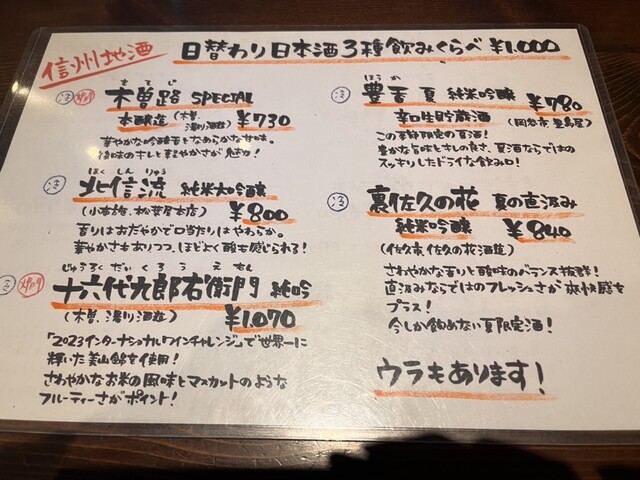 信州地酒
日替わり日本酒3種飲みくらべ ¥1.000
冷
きそじ
木曽路 SPECIAL
本醸造(木曽、湯川酒造) ¥730
華やかな吟醸香となめらかな甘味。
後味のキレと軽やかさが魅力!
冷
ほくしんりゅう
北信流 純米大吟醸
(小布施、松葉屋本店) ¥800
香りはおだやかで口当たりはやわらか。
華やかさもありつつ、ほどよく酸も感じられる!
じゅうろくだいくろうえもん
十六代九郎右衛門 純吟
(木曽、湯川酒造) ¥1.070
「2023インターナショナルワインチャレンジ」で世界一に
輝いた美山錦を使用!
さわやかなお米の風味とマスカットのような
フルーティーさがポイント!
冷
ほうか
豊香 夏 純米吟醸 ¥780
辛口生貯蔵酒 (岡谷市 豊島屋)
この季節限定の夏酒!
豊かな旨味とキレの良さ、夏酒ならでは の
スッキリしたドライな飲み口!
冷
裏佐久の花 夏の直汲み
純米吟醸 ¥840
(佐久市、佐久の花酒造)
さわやかな香りと酸味のバランス抜群!
直汲みならではのフレッシュさが爽快感を
プラス!
今しか飲めない夏限定酒!
ウラもあります!